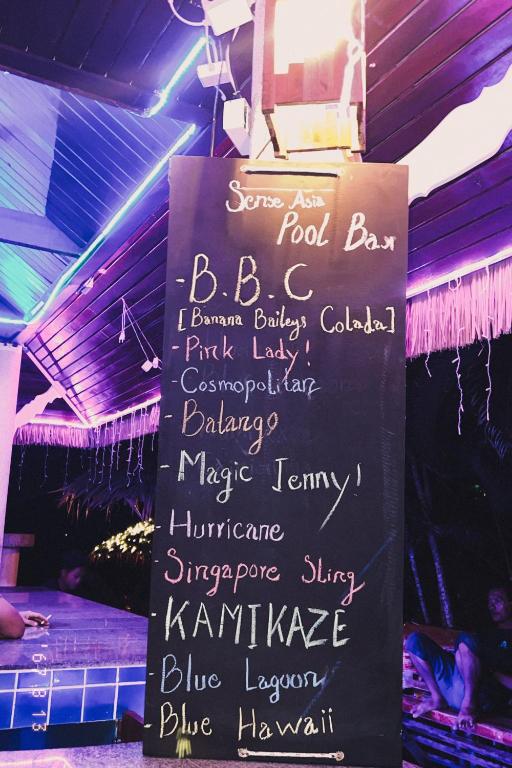 Sense Asia
Pool Bar
- B.B.C
[Banana Baileys Colada]
- Pink Lady!
- Cosmopolitan
- Balango
- Magic Jenny!
- Hurricane
- Singapore Sling
- KAMIKAZE
- Blue Lagoon
- Blue Hawaii
'67 8 13